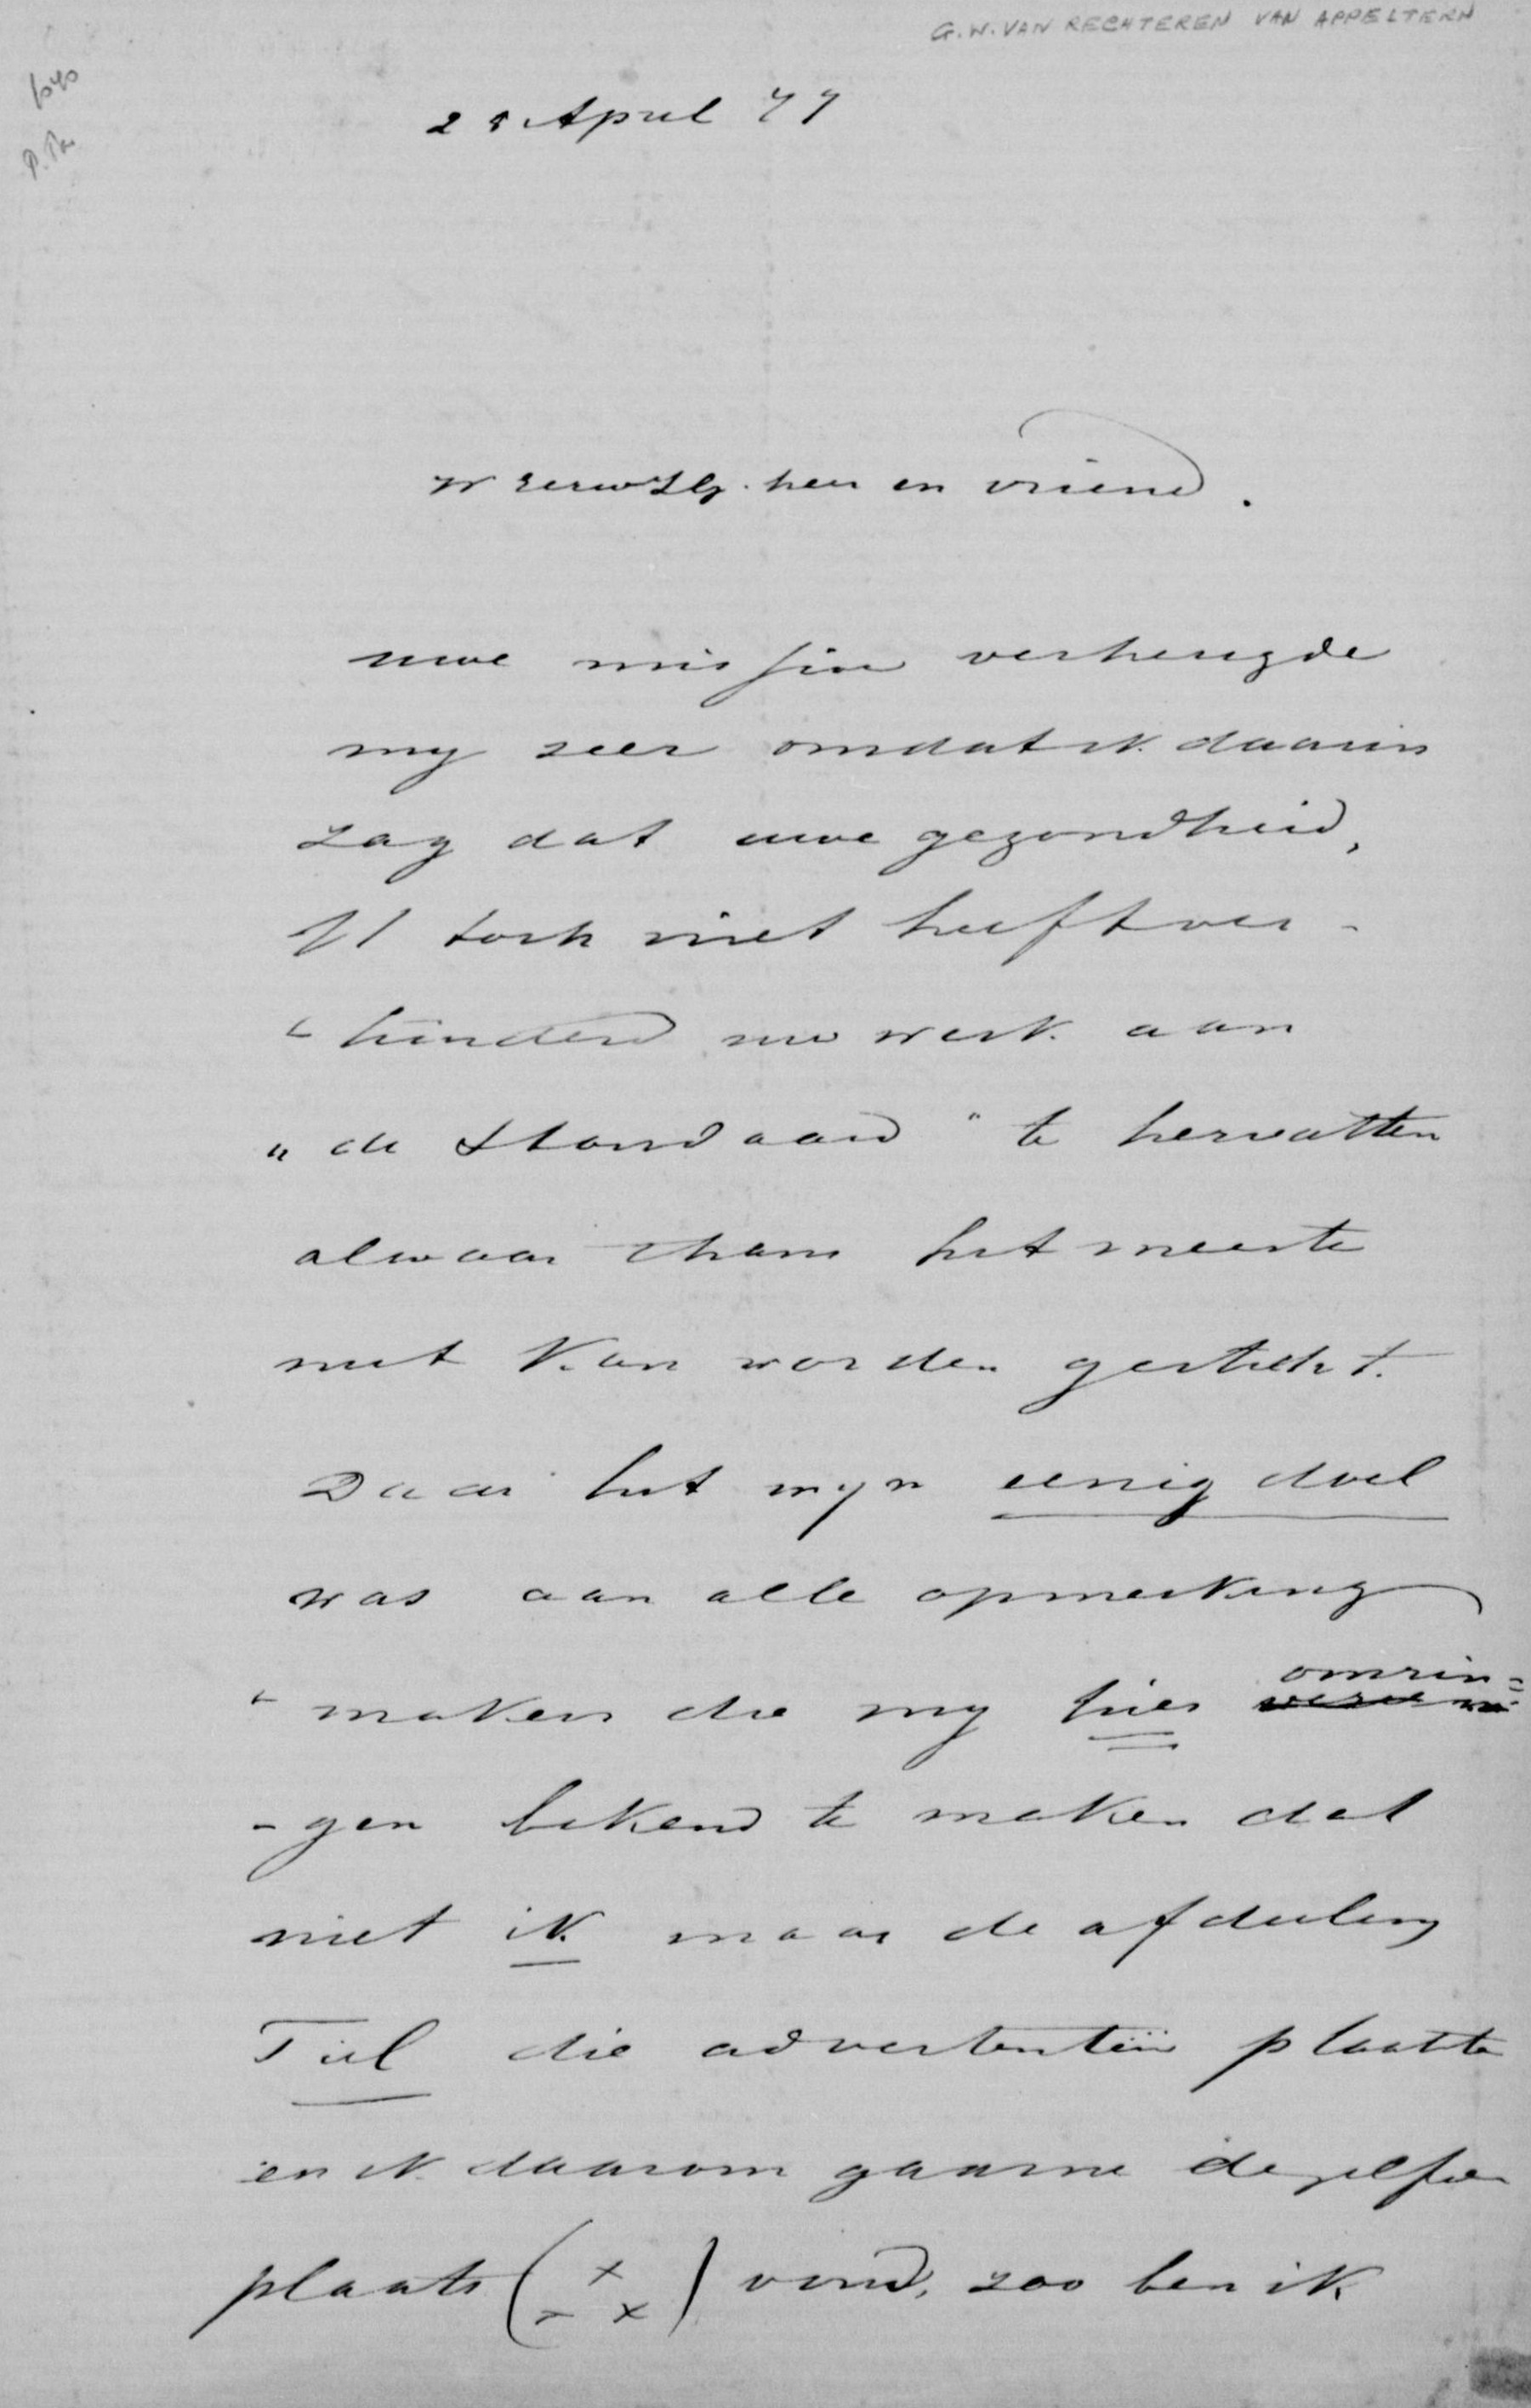 G.W. VAN RECHTEREN VAN APPELTERN
28 April 77
WEerwZEg. heer en vriend.
uwe missive verheugde
my zeer omdat ik daarin
zag dat uwe gezondheid,
U toch niet heeft ver-
hinderd uw werk aan
"de Standaard" te hervatten
alwaar thans het meeste
nut kan worden gesticht.
Daar het myn eenig doel
was aan alle opmerking
maken die my hier omrin=
-gen bekend te maken dat
niet ik maar de afdeeling
Tiel die advertentiën plaatste
en ik daarom gaarne dezelfde
plaats ( x – x ) vond, zoo ben ik